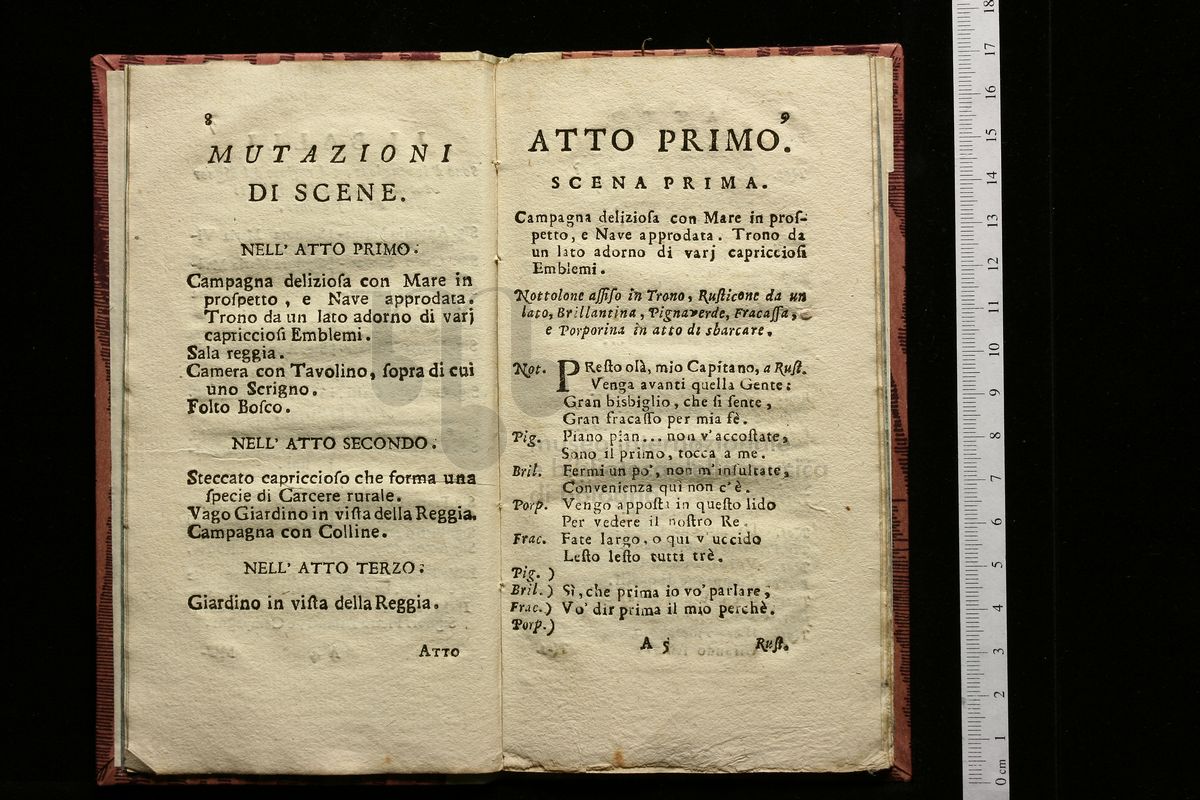 8
MUTAZIONI
DI SCENE.
NELL' ATTO PRIMO:
Campagna delizioſa con Mare in
proſpetto , e Nave approdata.
Trono da un lato adorno di varj
capriccioſi Emblemi.
Sala reggia.
Camera con Tavolino, ſopra di cui
uno Scrigno.
Folto Boſco.
NELL' ATTO SECONDO.
Steccato capriccioſo che forma una
ſpecie di Carcere rurale.
Vago Giardino in viſta della Reggia.
Campagna con Colline.
NELL' ATTO TERZO:
Giardino in viſta della Reggia.
ATTO
9
ATTO PRIMO.
SCENA PRIMA.
Campagna delizioſa con Mare in proſ-
petto, e Nave approdata. Trono da
un lato adorno di varj capriccioſi
Emblemi.
Nottolone aſſiſo in Trono, Ruſticone da un
lato, Brillantina, Pignaverde, Fracaſſa,
e Porporina in atto di sbarcare.
Not. PReſto olà, mio Capitano, a Ruſt.
Venga avanti quella Gente:
Gran bisbiglio, che ſi ſente,
Gran fracaſſo per mia fè.
Pig. Piano pian... non v'accoſtate,
Sono il primo, tocca a me.
Bril. Fermi un po', non m'inſultate,
Convenienza quì non c'è.
Porp. Vengo appoſta in queſto lido
Per vedere il noſtro Re.
Frac. Fate largo, o qui v'uccido
Leſto leſto tutti trè.
Pig. )
Bril. ) Sì, che prima io vo' parlare;
Frac. ) Vo' dir prima il mio perchè.
Porp.)
A 5 Ruſt.
18
17
16
15
14
13
12
11
10
9
8
7
6
5
4
3
2
1
0 cm